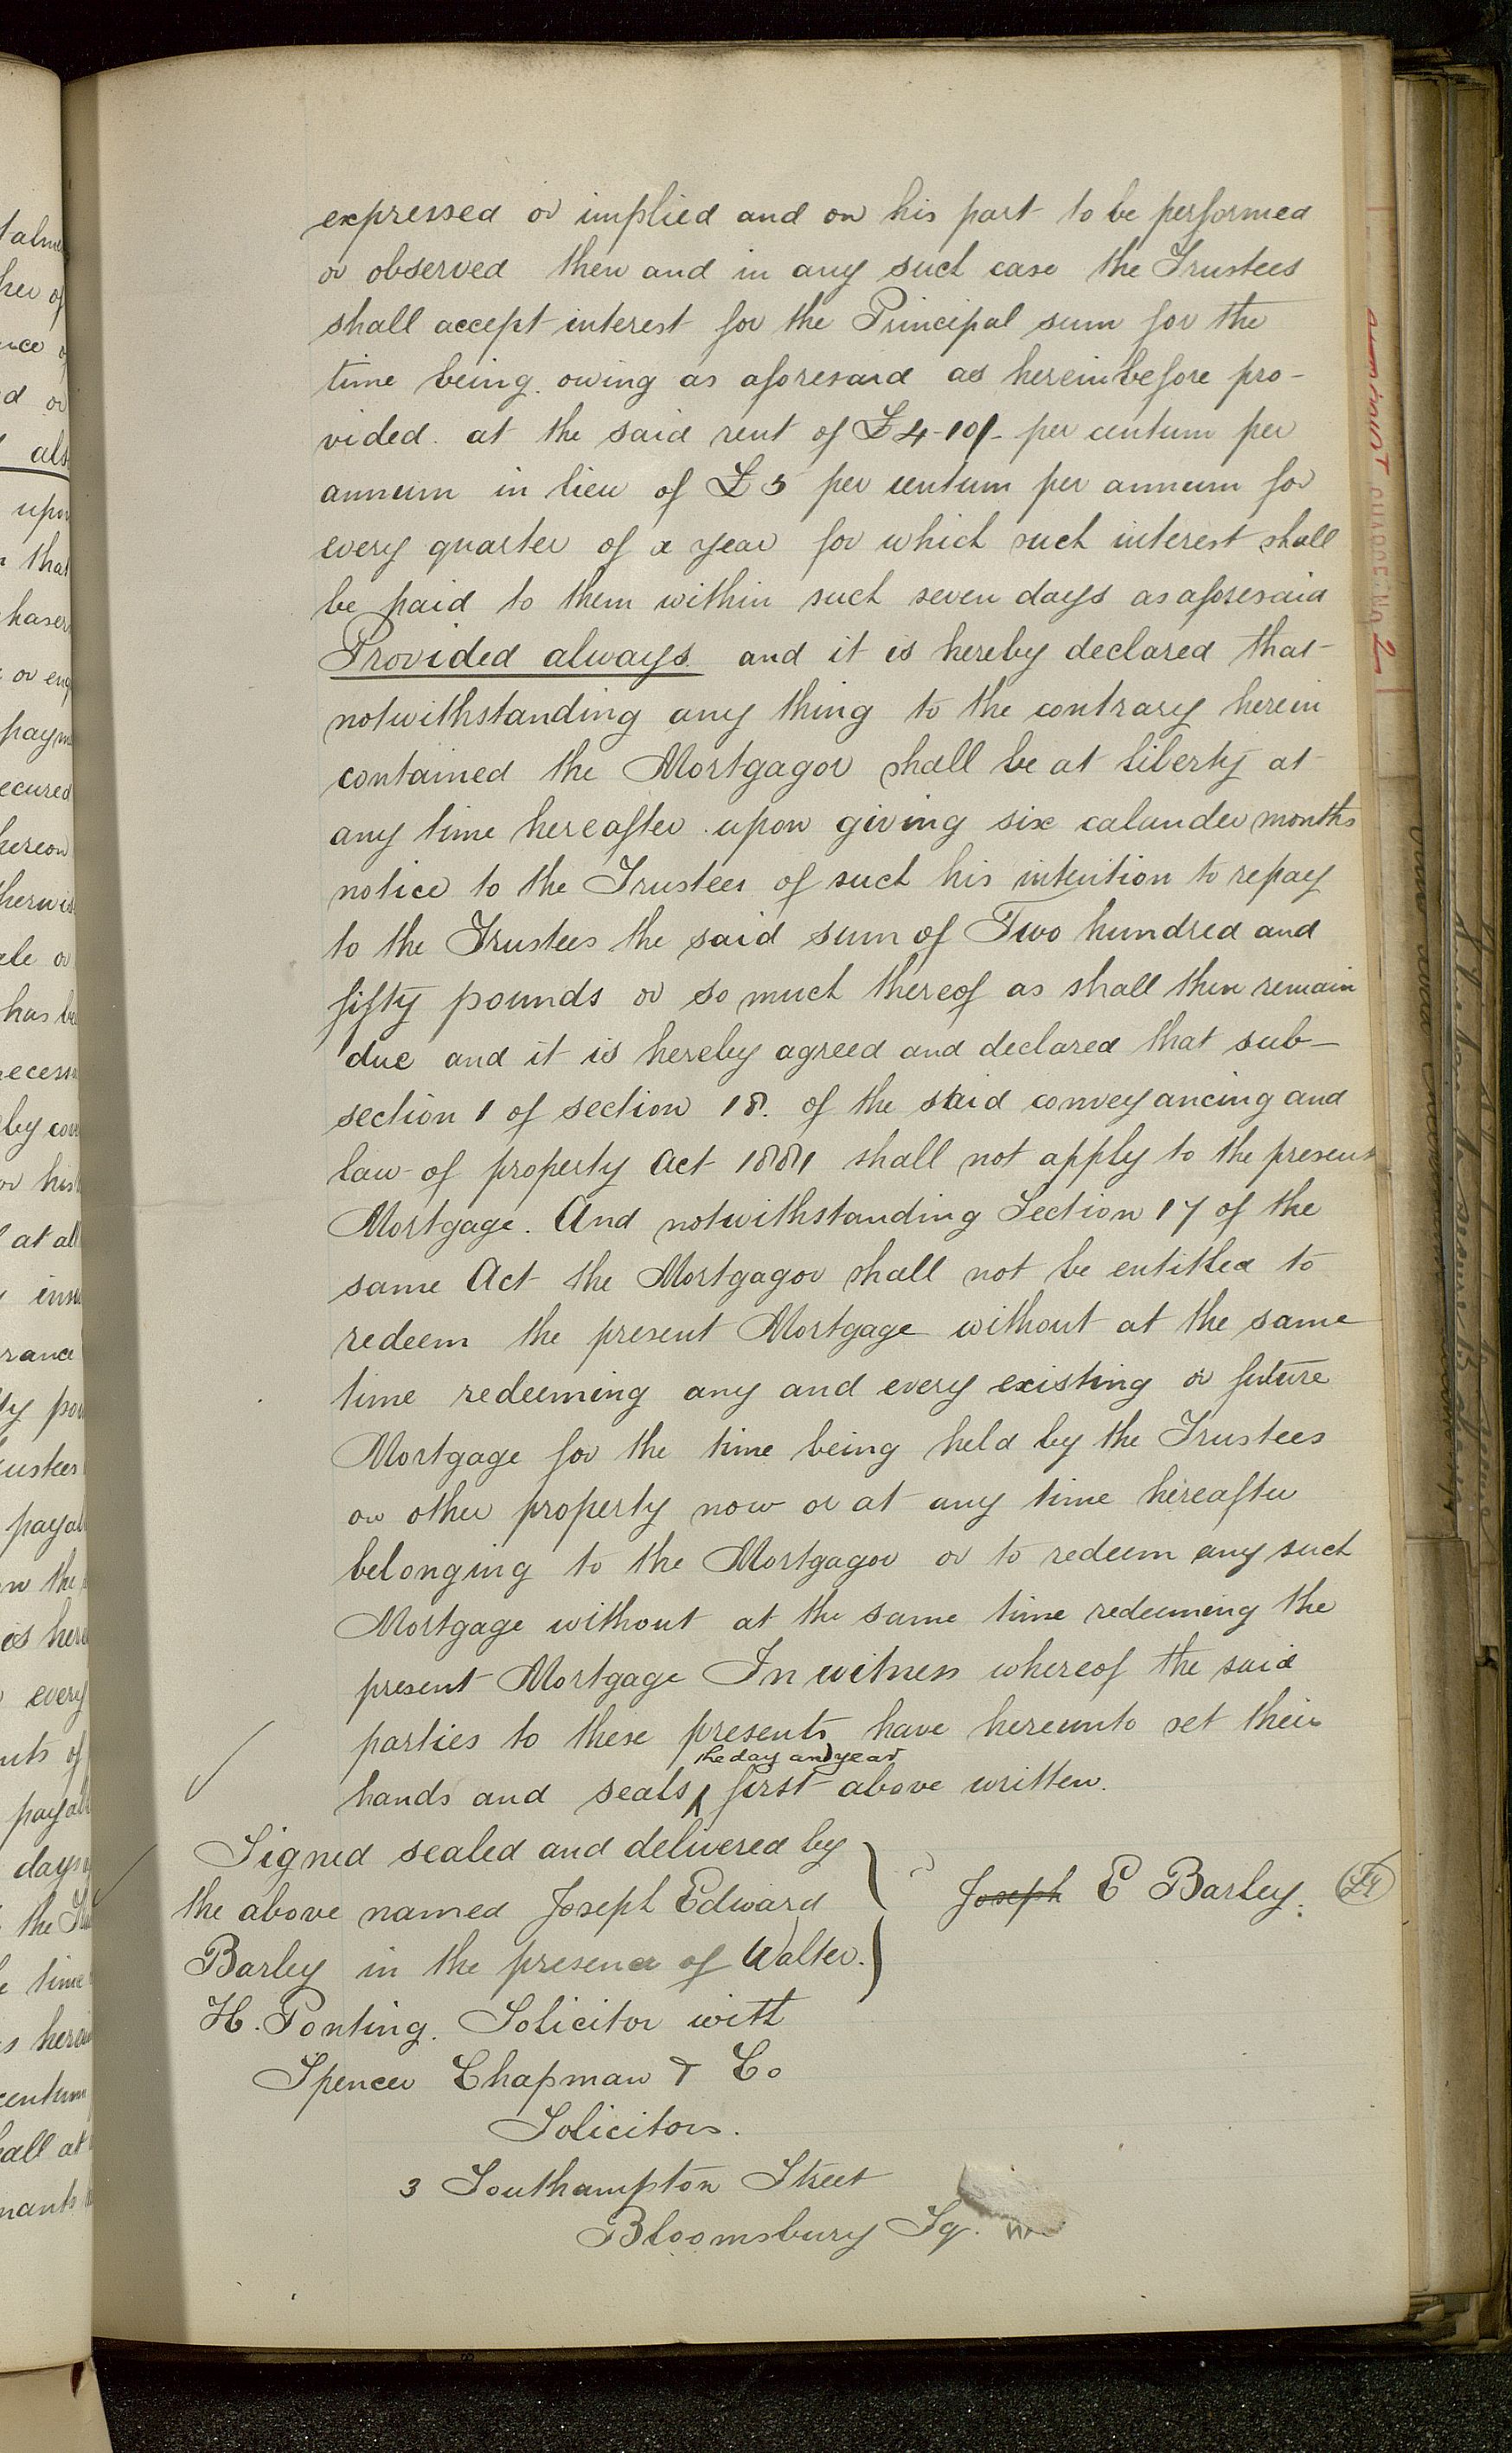 expressed or implied and on his part to be performed
or observed then and in any such case the Trustees
shall accept interest for the Principal sum for the
time being owing as aforesaid as hereinbefore pro-
vided at the said rent of £4-10/- per centum per
annum in lieu of £5 per centum per annum for
every quarter of a year for which such interest shall
be paid to them within such seven days as aforesaid
Provided always and it is hereby declared that
notwithstanding any thing to the contrary herein
contained the Mortgagor shall be at liberty at
any time hereafter upon giving six calander months
notice to the Trustees of such his intention to repay
to the Trustees the said sum of Two hundred and
fifty pounds or so much thereof as shall then remain
due and it is hereby agreed and declared that sub-
section 1 of section 18. of the said conveyancing and
law of property Act 1881 shall not apply to the present
Mortgage. And notwithstanding Section 17 of the
same Act the Mortgagor shall not be entitled to
redeem the present Mortgage without at the same
time redeeming any and every existing or future
Mortgage for the time being held by the Trustees
on other property now or at any time hereafter
belonging to the Mortgagor or to redeem any such
Mortgage without at the same time redeeming the
present Mortgage In witness whereof the said
parties to these presents have hereunto set their
the day and year
hands and seals first above written.
Signed sealed and delivered by
the above named Joseph Edward
Joseph E Barley.
Barley in the presence of Walter.
H. Ponting. Solicitor with
Spencer Chapman & Co
Solicitors.
3 Southampton Street
Bloomsbury Sq.